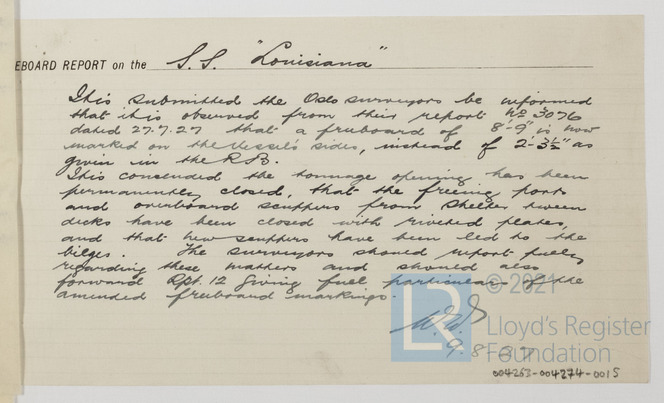 EBOARD REPORT on the S.S. "Louisiana"
It is submitted the Oslo surveyors be informed
that it is observed from their report No 3076
dated 27.7.27 that a freeboard of 8'-9" is now
marked on the Vessel's sides, instead of 2'-3½" as
given in the R.B.
It is considered the tonnage opening has been
permanently closed, that the freeing ports
and overboard scuppers from shelter tween
decks have been closed with riveted plates,
and that new scuppers have been led to the
bilges. The surveyors should report fully
regarding these matters and should also
forward Rpt. 12 giving full particulars of the
amended freeboard markings.
9.8.27
© 2021
LR
Lloyd's Register
Foundation
004263-004274-0015